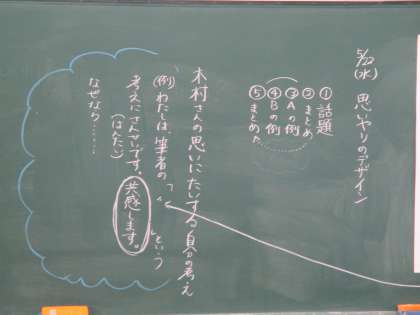 5/22(水) 思いやりのデザイン
①話題
②まとめ
③Aの例
④Bの例
⑤まとめ
木村さんの思いにたいする自分の考え
(例)わたしは、筆者の「〰」という
考えにさんせいです。
(はんたい)
共感します。
なぜなら……